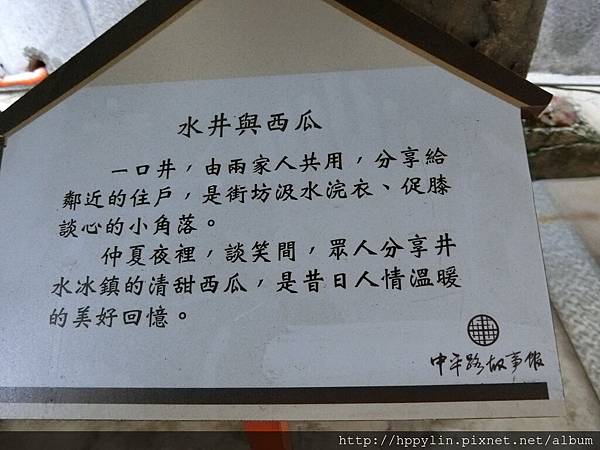 水井與西瓜
一口井，由兩家人共用，分享給
鄰近的住戶，是街坊汲水浣衣、促膝
談心的小角落。
仲夏夜裡，談笑間，眾人分享井
水冰鎮的清甜西瓜，是昔日人情溫暖
的美好回憶。
中平路故事館
http://hppylin.pixnet.net/album